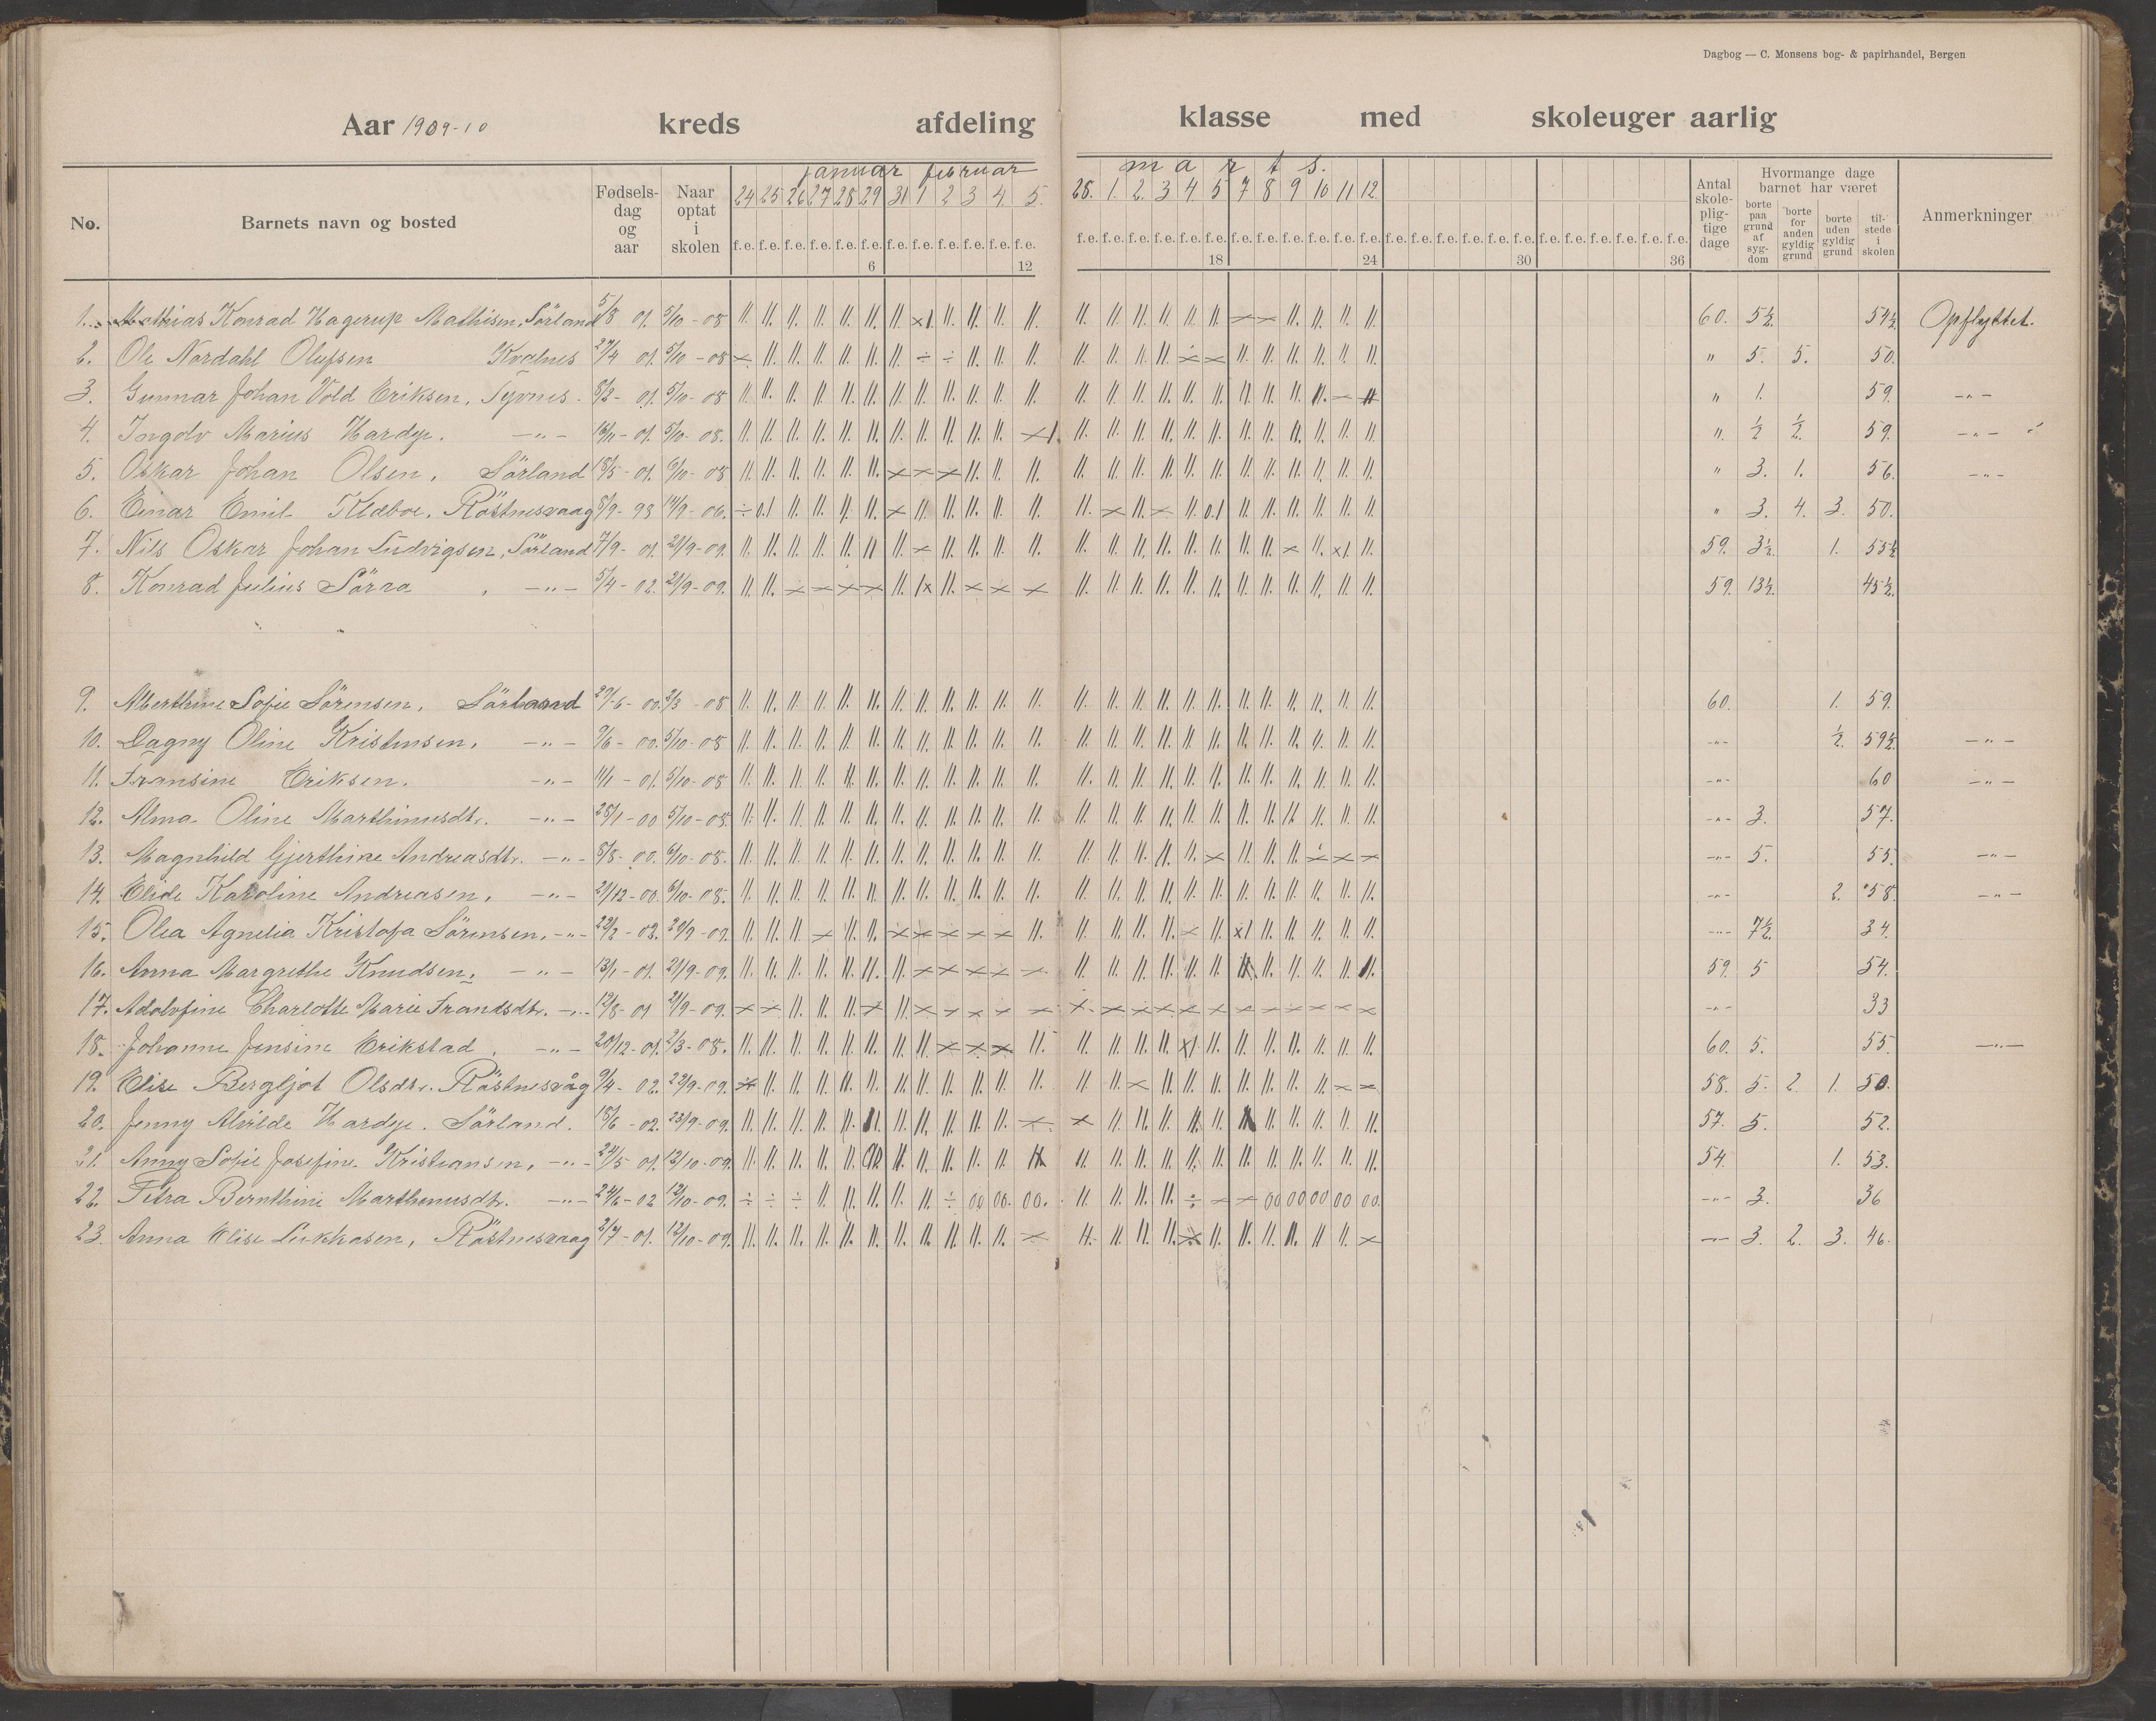 Dagbog — C. Monsens bog- & papirhandel, Bergen
Aar 1909-10 kreds afdeling klasse med skoleuger aarlig
januar februar marts.
No. Barnets navn og bosted Fødselsdag og aar Naar optat i skolen 24 25 26 27 28 29 31 1 2 3 4. 5. 28. 1. 2. 3 4. 5 7 8 9 10 11 12. Antal skolepligtige dage Hvormange dage barnet har været borte paa grund af sygdom borte for anden gyldig grund borte uden gyldig grund tilstede i skolen Anmerkninger
f.e. f.e. f.e. f.e. f.e. f.e. f.e. f.e. f.e. f.e. f.e. f.e. f.e. f.e. f.e. f.e. f.e. f.e. f.e. f.e. f.e. f.e. f.e. f.e. f.e. f.e. f.e. f.e. f.e. f.e. f.e. f.e. f.e. f.e. f.e. f.e.
6 12 18 24 30 36
1. Mathias Konrad Hagerup Mathisen, Sörland 5/8 01. 5/10 - 08 60. 5½ 54½ Opflyttet.
2. Ole Nordahl Olufsen Kvalnes 27/4 01. 5/10 - 08 " 5. 5. 50.
3. Gunnar Johan Vold Eriksen, Tyvnes. 8/2 - 01. 5/10 - 08 " 1. 59. -"-
4. Ingolv Marius Hardye. -"- 01. 5/10 - 08. " ½ ½ 59. -"-
5. Oskar Johan Olsen, Sörland 18/5 - 01. 6/10 - 08 " 3. 1. 56. -"-
6. Einar Emil Klæboe, Röstnesvaag 8/9 - 98 14/9 - 06. " 3. 4. 3. 50.
7. Nils Oskar Johan Ludvigsen, Sörland 7/9 - 01. 21/9 - 09. 59. 3½ 1. 55½
8. Konrad Julius Sörra, -"- 5/4 - 02. 21/9 - 09. 59. 13½. 45½.
9. Alberthine Sofie Sörensen, Sörland 29/6 - 00. 2/3 - 08 60. 1. 59.
10. Dagny Oline Kristensen, -"- 9/6 - 00. 5/10 - 08 -"- ½ 59½ -"-
11. Fransine Eriksen. -"- 11/1 - 01. 5/10 - 08 -"- 60 -"-
12. Alma Oline Marthinusdtr. -"- 28/1 - 00 5/10 - 08. -"- 3. 57.
13. Magnhild Gjerthine Andreasdtr. -"- 8/8 - 00. 6/10 - 08. -"- 5. 55. -"-
14. Elide Karoline Andreasen, -"- 21/12 - 00. 6/10 - 08. -"- 2. 58. -"-
15. Olea Agnelia Kristofa Sörensen, -"- 22/2 - 02. 20/9 - 09. -"- 7½ 34.
16. Anna Margrethe Knudsen, -"- 13/1 - 01. 21/9 - 09. 59. 5 54.
17. Adolofine Charlotte Marie Frandsdtr. -"- 12/8 - 01 21/9 - 09. -"- 33
18. Johanne Jensine Erikstad, -"- 20/12 - 01. 2/3 - 08. 60. 5. 55. -"-
19. Elise Bergljot Olsdtr. Röstnesvåg 9/4 - 02. 22/9 - 09. 58. 5. 2. 1. 50.
20. Jenny Alvilde Hardye. Sörland. 18/6 - 02. 23/9 - 09. 57. 5. 52.
21. Anny Sofie Josefine Kristiansen, -"- 24/5 - 01. 12/10 - 09. 54. 1. 53.
22. Petra Bernthine Marthinusdtr. -"- 24/6 - 02 12/10 - 09. -"- 3. 36
23. Anna Elise Lukkasen, Röstnesvaag 2/7 - 01. 12/10 - 09. -"- 3. 2. 3. 46.